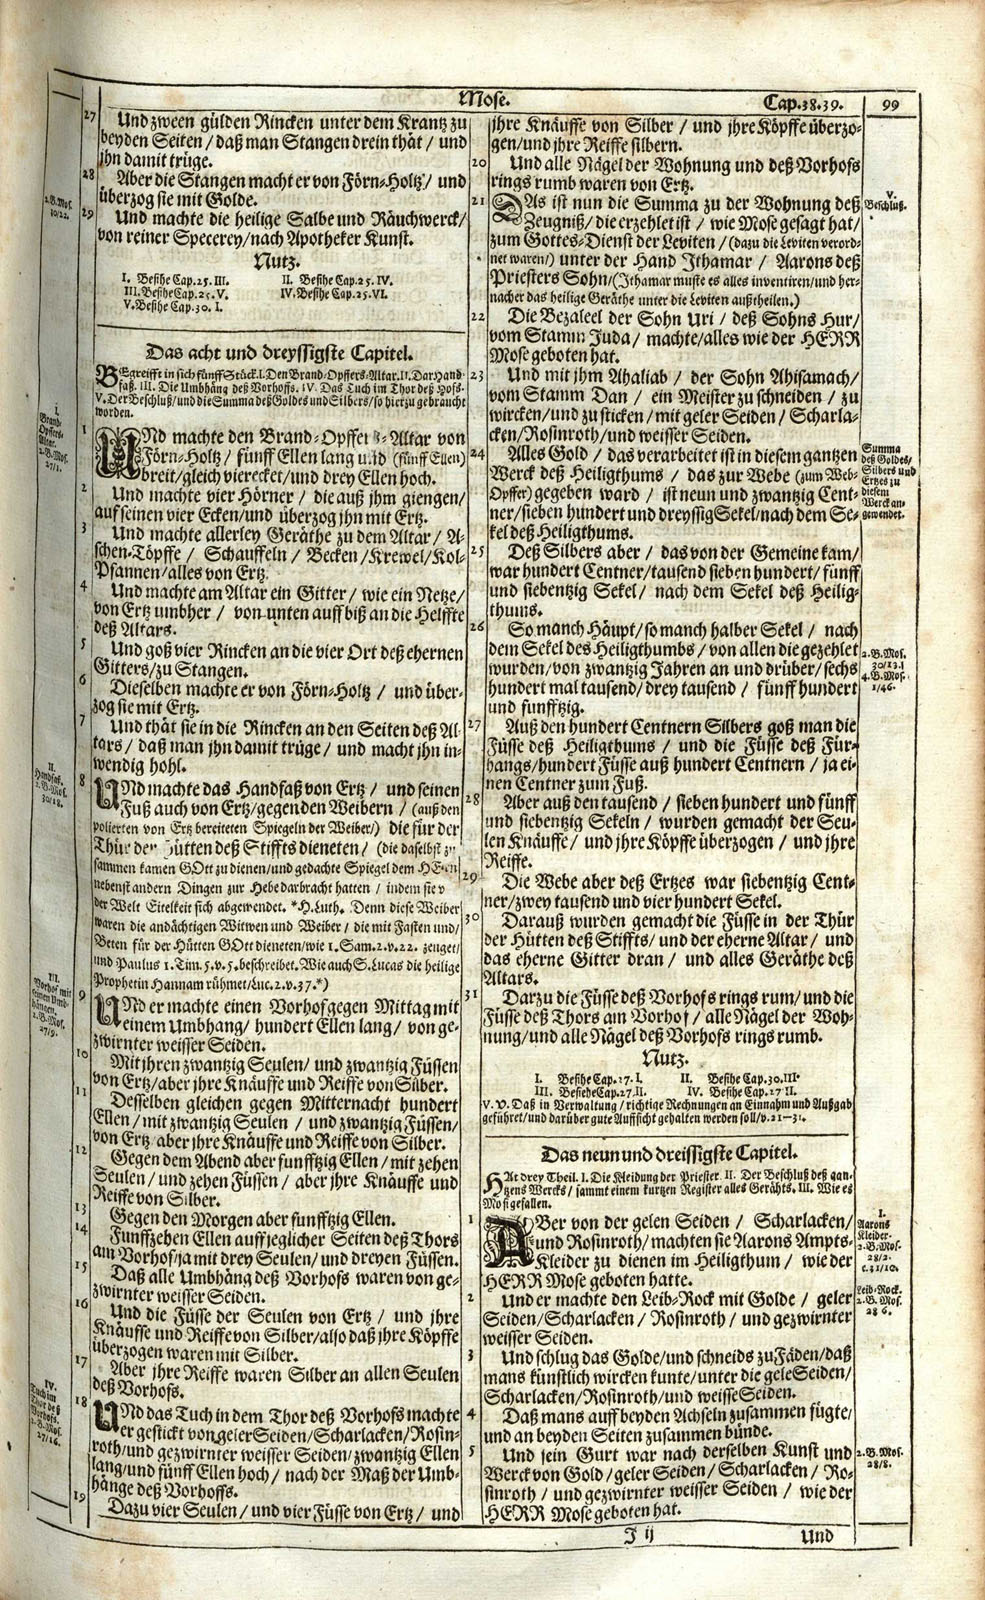 Mose. Cap.38.39. 99
27 Und zween gülden Rincken unter dem Krantz zu
beyden Seiten / daß man Stangen drein thät / und
jhn damit trüge.
28 Aber die Stangen macht er von Förn-Holtz / und
überzog sie mit Golde.
2.B.Mos.
30/22.
29 Und machte die heilige Salbe und Räuchwerck/
von reiner Specerey/nach Apotheker Kunst.
Nutz.
I. Besihe Cap.25.III. II. Besihe Cap.25.IV.
III. Besihe Cap.25.V. IV. Besihe Cap.25.VI.
V. Besihe Cap.30.I.
Das acht und dreyssigste Capitel.
BEgreifft in sich fünff Stück. I. Den Brand-Opffers-Altar. II. Dar Hand-
faß. III. Die Umbhäng deß Vorhofs. IV. Das Tuch im Thor deß Hofs.
V. Der Beschluß/und die Summa deß Goldes und Silbers/so hierzu gebraucht
worden.
I.
Brand-
Opffers-
Altar.
2.B.Mos.
27/1.
1 UNd machte den Brand-Opffer -Altar von
Förn-Holtz / fünff Ellen lang und (fünff Ellen)
breit/gleich vierecket/und drey Ellen hoch.
2 Und machte vier Hörner / die auß jhm giengen/
auf seinen vier Ecken/und überzog jhn mit Ertz.
3 Und machte allerley Geräthe zu dem Altar / A-
schen-Töpffe / Schauffeln / Becken/Krewel/Kol-
Pfannen/alles von Ertz.
4 Und machte am Altar ein Gitter / wie ein Netze/
von Ertz umbher / von unten auff biß an die Helffte
deß Altars.
5 Und goß vier Rincken an die vier Ort deß ehernen
Gitters/zu Stangen.
6 Dieselben machte er von Förn-Holtz / und über-
zog sie mit Ertz.
7 Und thät sie in die Rincken an den Seiten deß Al-
tars / daß man jhn damit trüge / und macht jhn in-
wendig hohl.
II.
Handfaß.
2.B.Mos.
30/18.
8 UNd machte das Handfaß von Ertz / und seinen
Fuß auch von Ertz/gegen den Weibern / (auß den
polierten von Ertz bereiteten Spiegeln der Weiber/) die für der
Thür der Hütten deß Stiffts dieneten / (die daselbst
sammen kamen GOtt zu dienen/und gedachte Spiegel dem
nebenst andern Dingen zur Hebe darbracht hatten / indem sie
der Welt Eitelkeit sich abgewendet. *H.Luth. Denn diese Weiber
waren die andächtigen Witwen und Weiber / die mit Fasten und/
Beten für der Hütten GOtt dieneten/wie 1. Sam.2.v.22. zeuget/
und Paulus 1. Tim.5.v.5.beschreibet. Wie auch S.Lucas die heilige
Prophetin Hannam rühmet/Luc.2.v.37.*)
III.
Vorhof mit
seinen Umb-
hängen.
2.B.Mos.
27/9.
9 UNd er machte einen Vorhof gegen Mittag mit
einem Umbhang/ hundert Ellen lang / von ge-
zwirnter weisser Seiden.
10 Mit jhren zwantzig Seulen/ und zwantzig Füssen
von Ertz/aber jhre Knäuffe und Reiffe von Silber.
11 Desselben gleichen gegen Mitternacht hundert
Ellen/mit zwantzig Seulen / und zwantzig Füssen/
von Ertz aber jhre Knäuffe und Reiffe von Silber.
12 Gegen dem Abend aber funfftzig Ellen / mit zehen
Seulen/ und zehen Füssen / aber jhre Knäuffe und
Reiffe von Silber.
13 Gegen den Morgen aber funfftzig Ellen.
14 Funffzehen Ellen auff jeglicher Seiten deß Thors
am Vorhof/ja mit drey Seulen/ und dreyen Füssen.
15 Daß alle Umbhäng deß Vorhofs waren von ge-
zwirnter weisser Seiden.
16 Und die Füsse der Seulen von Ertz / und jhre
Knäuffe und Reiffe von Silber/also daß jhre Köpffe
überzogen waren mit Silber.
17 Aber jhre Reiffe waren Silber an allen Seulen
deß Vorhofs.
IV.
Tuch im
Thor deß
Vorhofs.
2.B.Mos.
27/16.
18 UNd das Tuch in dem Thor deß Vorhofs machte
er gestickt von geler Seiden/Scharlacken/Rosin-
roth/und gezwirnter weisser Seiden/zwantzig Ellen
lang/und fünff Ellen hoch / nach der Maß der Umb-
hänge deß Vorhoffs.
19 Dazu vier Seulen / und vier Füsse von Ertz / und
jhre Knäuffe von Silber / und jhre Köpffe überzo-
gen/und jhre Reiffe silbern.
20 Und alle Nägel der Wohnung und deß Vorhofs
rings rumb waren von Ertz.
V.
Beschluß.
21 DAs ist nun die Summa zu der Wohnung deß
Zeugniß/die erzehlet ist / wie Mose gesagt hat/
zum Gottes-Dienst der Leviten / (dazu die Leviten verord-
net waren/) unter der Hand Ithamar / Aarons deß
Priesters Sohn/(Ithamar muste es alles inventiren/und her-
nacher das heilige Geräthe unter die Leviten außtheilen.)
22 Die Bezaleel der Sohn Uri / deß Sohns Hur/
vom Stamm Juda / machte/alles wie der HERR
Mose geboten hat.
23 Und mit jhm Ahaliab / der Sohn Ahisamach/
vom Stamm Dan / ein Meister zu schneiden / zu
wircken/und zu sticken/mit geler Seiden/ Scharla-
cken/Rosinroth/und weisser Seiden.
Summa
deß Goldes/
Silbers und
Ertzes zu
diesem
Werck an-
gewendet.
24 Alles Gold / das verarbeitet ist in diesem gantzen
Werck deß Heiligthums / das zur Webe (zum Web-
Opffer) gegeben ward / ist neun und zwantzig Cent-
ner/sieben hundert und dreyssig Sekel/nach dem Se-
kel deß Heiligthums.
25 Deß Silbers aber / das von der Gemeine kam/
war hundert Centner/tausend sieben hundert/ fünff
und siebentzig Sekel / nach dem Sekel deß Heilig-
thums.
2.B.Mos.
30/13.
4.B.Mos.
1/46.
26 So manch Häupt/so manch halber Sekel / nach
dem Sekel des Heiligthumbs/von allen die gezehlet
wurden/von zwantzig Jahren an und drüber/sechs
hundert mal tausend/drey tausend / fünff hundert
und funfftzig.
27 Auß den hundert Centnern Silbers goß man die
Füsse deß Heiligthums / und die Füsse deß Für-
hangs/hundert Füsse auß hundert Centnern / ja ei-
nen Centner zum Fuß.
28 Aber auß den tausend / sieben hundert und fünff
und siebentzig Sekeln / wurden gemacht der Seu-
len Knäuffe / und jhre Köpffe überzogen / und jhre
Reiffe.
29 Die Webe aber deß Ertzes war siebentzig Cent-
ner/zwey tausend und vier hundert Sekel.
30 Darauß wurden gemacht die Füsse in der Thür
der Hütten deß Stiffts/ und der eherne Altar / und
das eherne Gitter dran / und alles Geräthe deß
Altars.
31 Darzu die Füsse deß Vorhofs rings rum/und die
Füsse deß Thors am Vorhof / alle Nägel der Woh-
nung/und alle Nägel deß Vorhofs rings rumb.
Nutz.
I. Besihe Cap.27.I. II. Besihe Cap.30.III.
III. Besiehe Cap.27.II. IV. Besihe Cap.27.II.
V. V. Daß in Verwaltung/richtige Rechnungen an Einnahm und Außgab
geführet/und darüber gute Auffsicht gehalten werden soll/v.21—31.
Das neun und dreissigste Capitel.
HAt drey Theil. I. Die Kleidung der Priester. II. Der Beschluß deß gan-
tzens Wercks / sammt einem kurtzen Register alles Gerähts. III. Wie es
Mosi gefallen.
I.
Aarons
Kleider.
2.B.Mos.
28/2.
c.31/10.
1 ABer von der gelen Seiden / Scharlacken/
und Rosinroth/machten sie Aarons Ampts-
Kleider zu dienen im Heiligthum / wie der
HERR Mose geboten hatte.
Leib-Rock.
2.B.Mos.
28 6.
2 Und er machte den Leib-Rock mit Golde / geler
Seiden/Scharlacken / Rosinroth / und gezwirnter
weisser Seiden.
3 Und schlug das Golde/und schneids zu Fäden/daß
mans künstlich wircken kunte/unter die gele Seiden/
Scharlacken/Rosinroth/und weisse Seiden.
4 Daß mans auff beyden Achseln zusammen fügte/
und an beyden Seiten zusammen bünde.
2.B.Mos.
28/8.
5 Und sein Gurt war nach derselben Kunst und
Werck von Gold/geler Seiden/Scharlacken / Ro-
sinroth / und gezwirnter weisser Seiden / wie der
HERR Mose geboten hat.
J ij Und